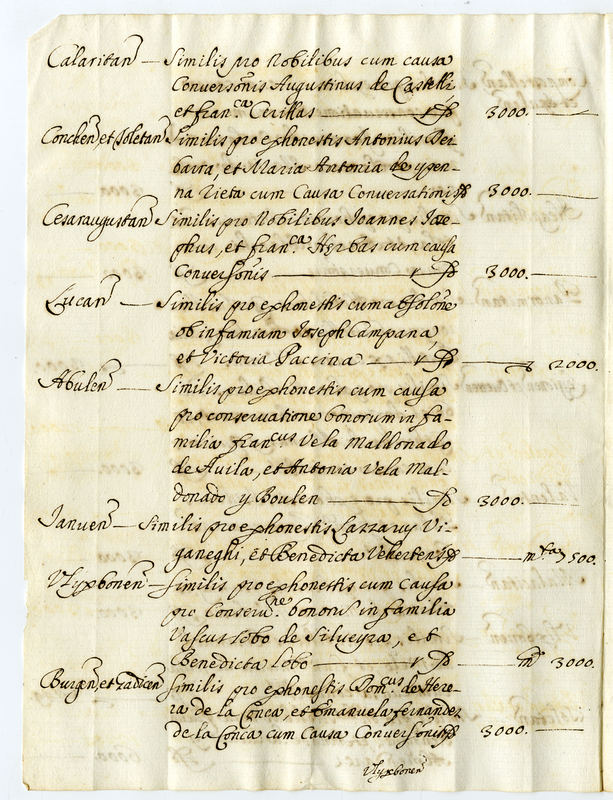 Calaritan̄ — Similis pro Nobilibus cum causa
Conversōnis Augustinus de Castelli
et fran.ca Cerillas — 3000.
Conchen̄ et Toletan̄ Similis pro ex honestis Antonius De i
barra, et Maria Antonia de ygen-
na Vieta cum Causa Conversationis 3000.
Cesaraugustan̄ Similis pro Nobilibus Joannes Joze-
phus, et fran.ca Herbas cum causa
Conversōnis — 3000.
Lucan̄ — Similis pro ex honestis cum absolōne
ob infamiam Joseph Campana,
et Victoria Paccina — 2000.
Abulen̄ — Similis pro ex honestis cum causa
pro conservatione bonorum in fa-
milia fran.cus Vela Maldonado
de Avila, et Antonia Vela Mal-
donado y Boulen — 3000.
Januen̄ — Similis pro ex honestis Lazzarus Vi-
ganeghi, et Benedicta — m.ta 500.
Vlyxbonen̄ — Similis pro ex honestis cum Causa
pro Conserv.ne bonorū in familia
Vascus Lobo de Silveyra, et
Benedicta Lobo — m.ta 3000.
Burgen̄, et Similis pro ex honestis Dom.cus de Here-
ra de la Conca, et Emanuela fernandez
de la Conca cum Causa Conversōnis 3000.
Vlyxbonen̄